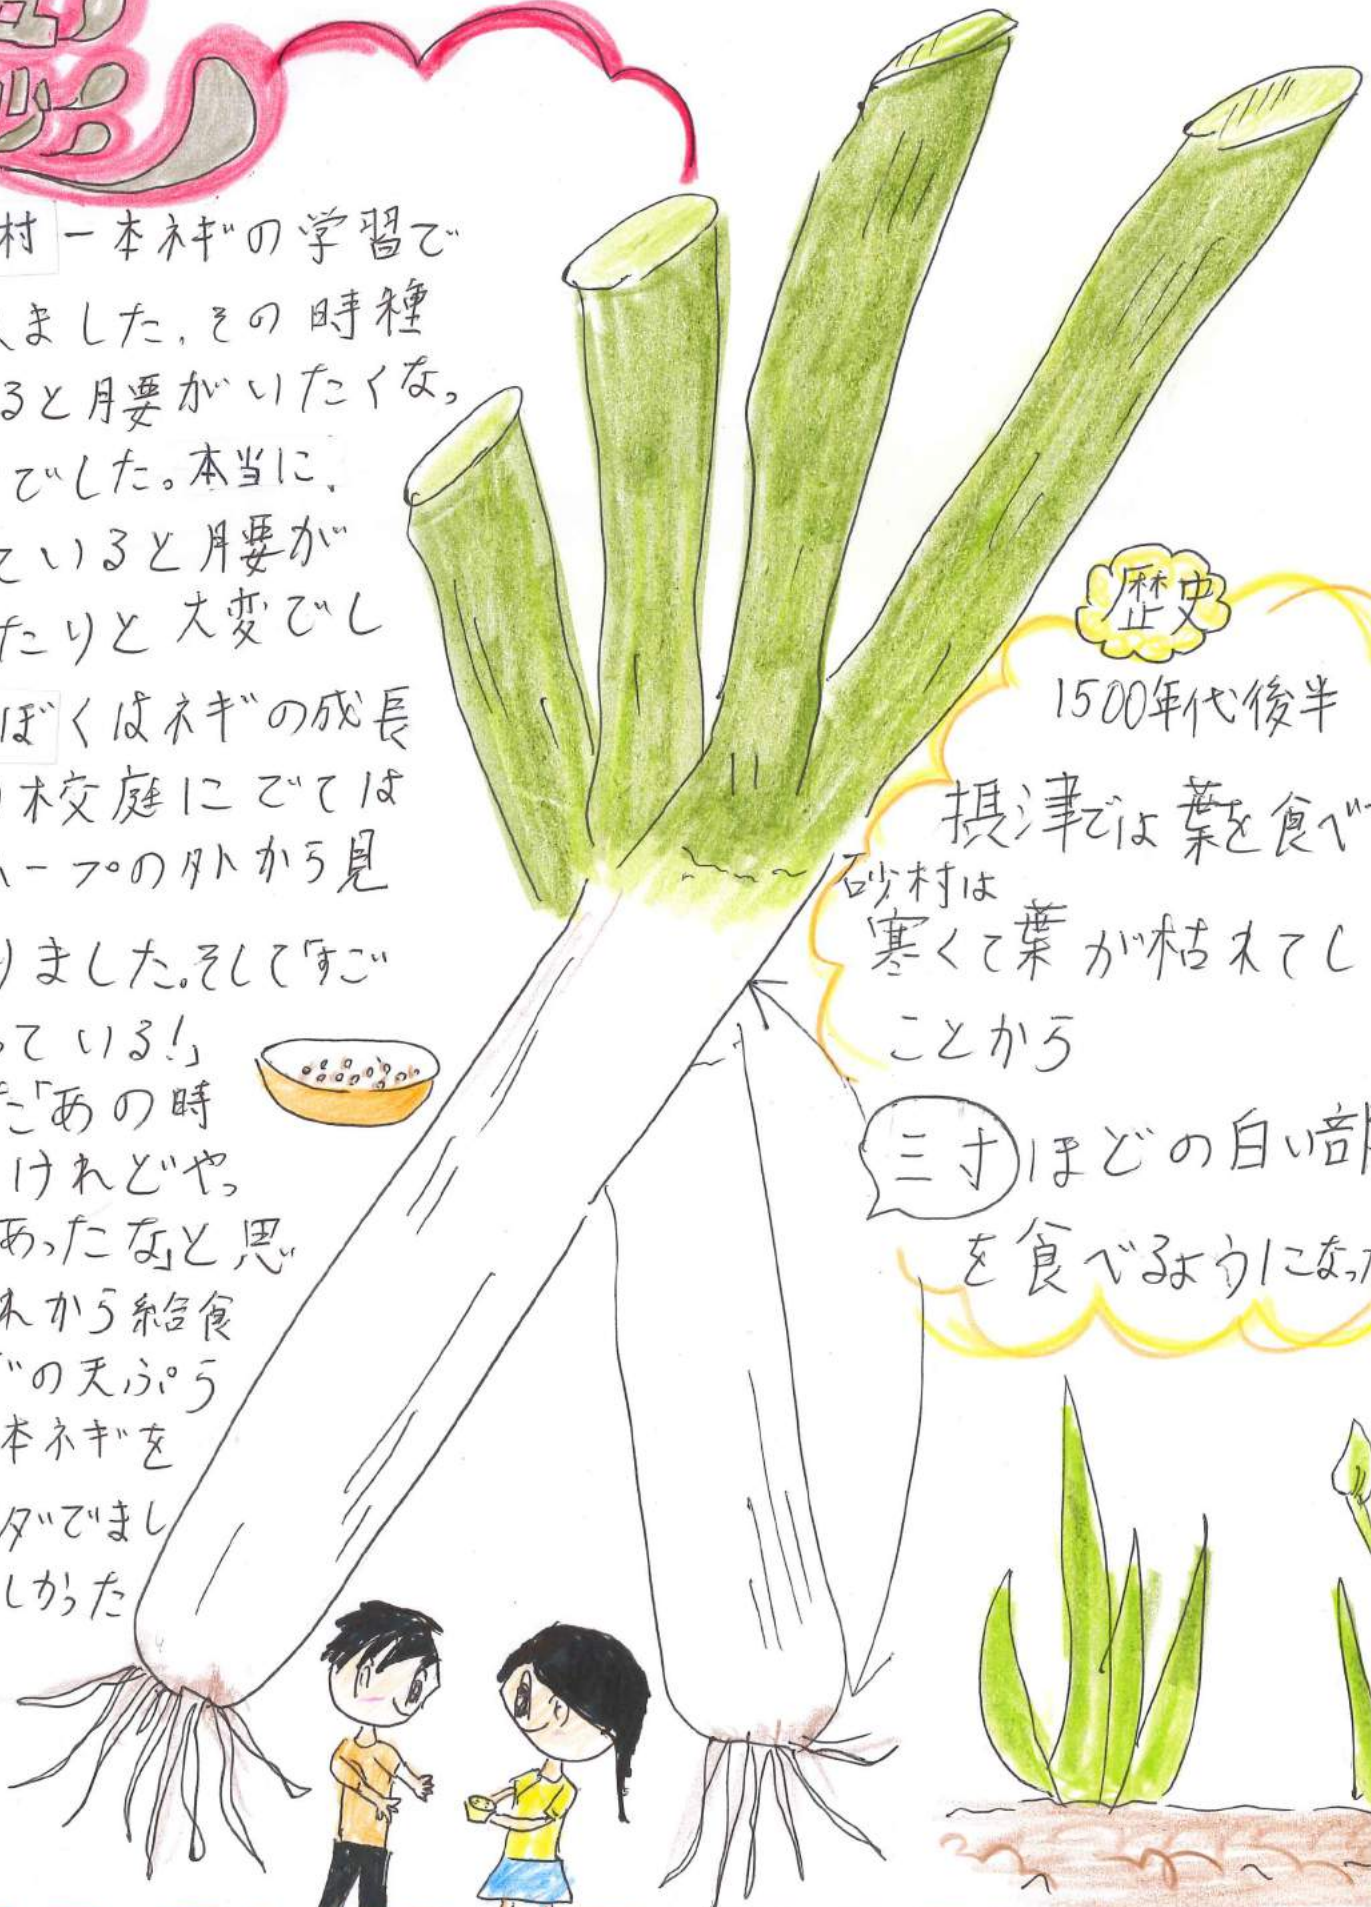 村一本ネギの学習で
ました。その時種
ると腰がいたくなっ
でした。本当に、
ていると腰が
たりと大変でし
ぼくはネギの成長
校庭にでては
ープの外から見
りました。そして「すご
っている!」
た「あの時
けれどやっ
あったな」と思
れから給食
の天ぷら
本ネギを
ダでまし
しかった
歴史
1500年代後半
摂津では葉を食べ
砂村は
寒くて葉が枯れてし
ことから
三寸ほどの白い部
を食べるようになった